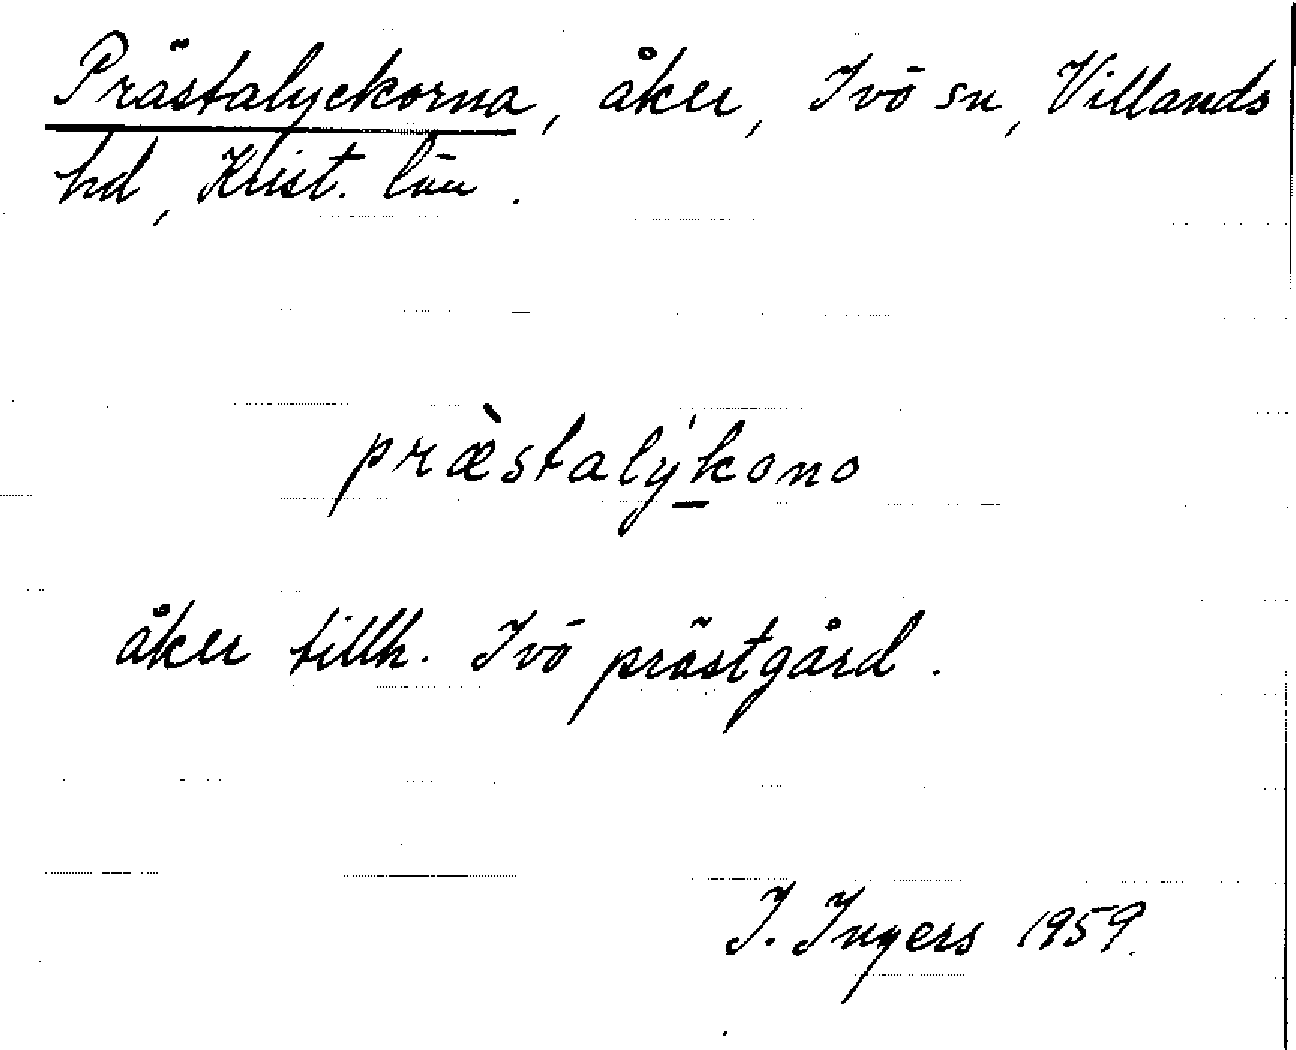 Prästalyckorna, åker, Ivö sn, Villands
hd, Krist. län.
præ̀stalý́kono
åker tillh. Ivö prästgård.
I. Ingers 1959.